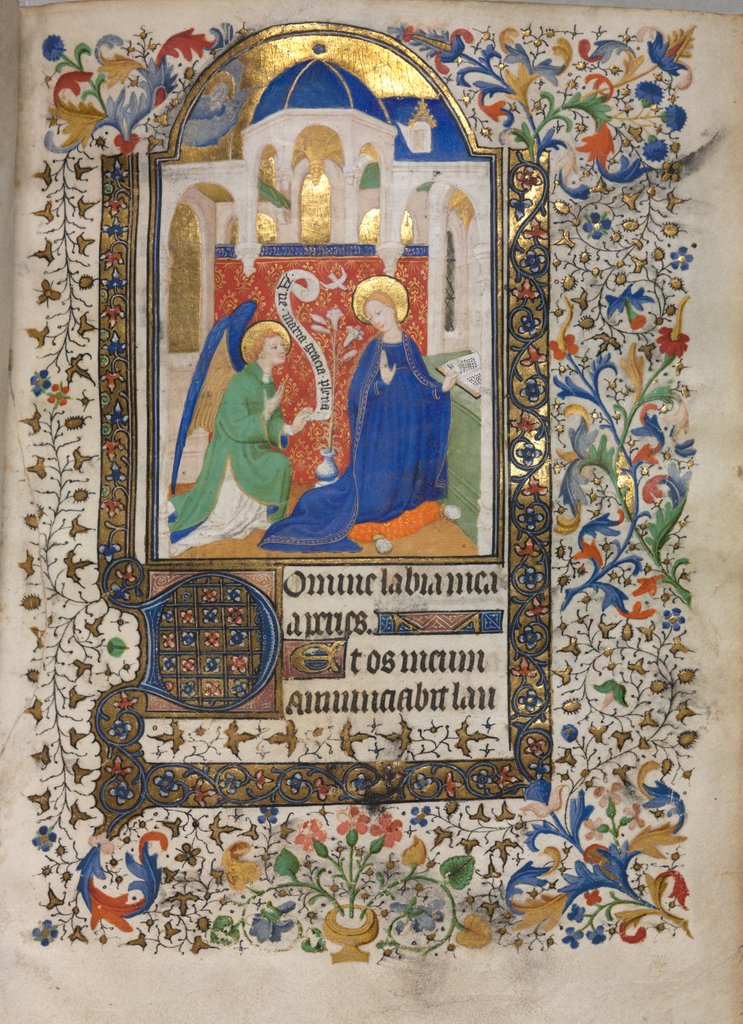 Aue maria gracia plena
Domine labia mea
aperies.
Et os meum
annunciabit lau